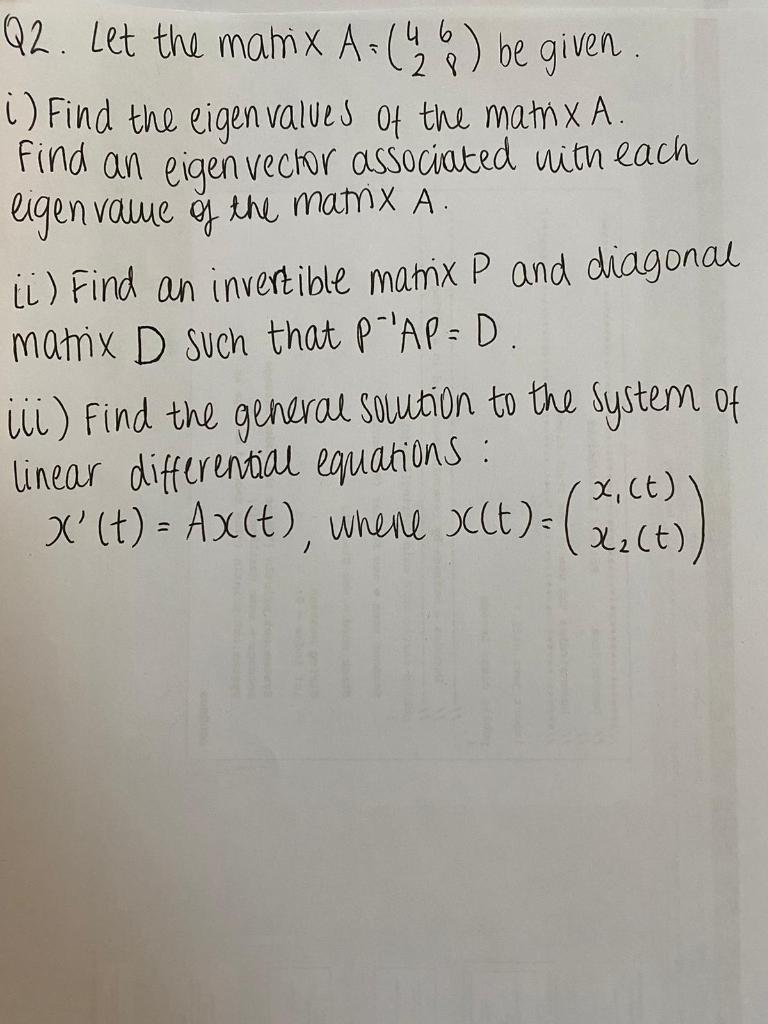 Q2. Let the matrix A = (4 6
2 8) be given.
i) Find the eigenvalues of the matrix A.
Find an eigenvector associated with each
eigenvalue of the matrix A.
ii) Find an invertible matrix P and diagonal
matrix D such that P⁻¹AP = D.
iii) Find the general solution to the system of
linear differential equations :
x'(t) = Ax(t), where x(t) = (x₁(t)
x₂(t))